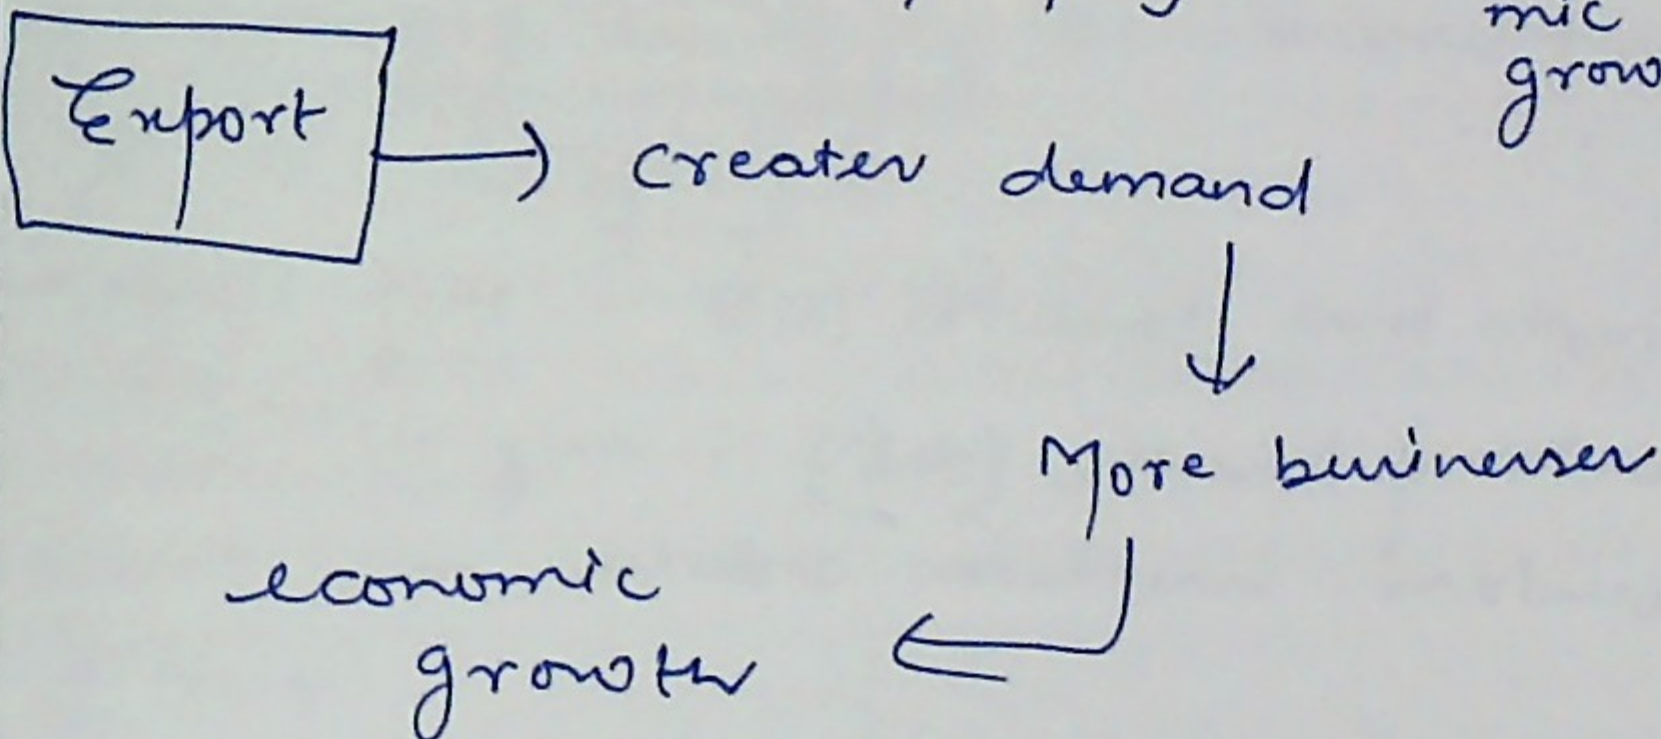 mic
grow
Export → creates demand
↓
More businesses
economic
growth